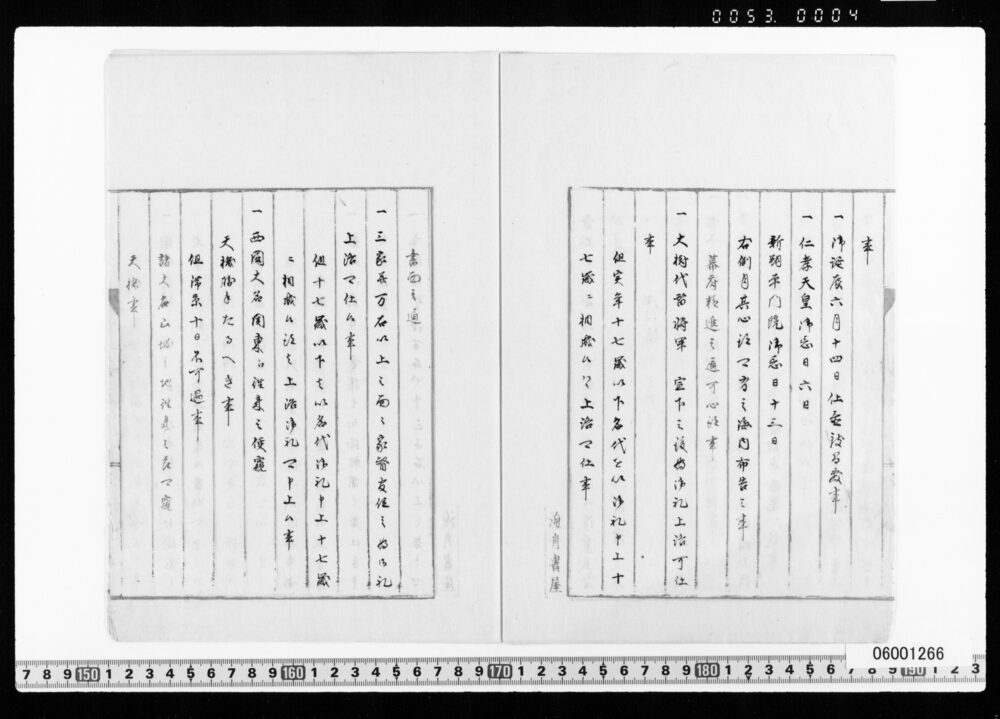 0053.0004
事
一 御誕辰六月十四日仕
一 仁孝天皇御忌日六日
新朔平門院御忌日十三日
右例月其心 海内布告之事
幕府 進之通可心 事
一 大樹代替将軍 宣下之後為御礼上洛可仕
事
但実年十七歳以下名代を以御礼申上十
七歳ニ相成候ハヽ上洛可仕事
書屋
書面之通
一 三家并万石以上之面々家督 任之為御礼
上洛可仕候事
但十七歳以下者以名代御礼申上十七歳
ニ相成候 上洛御礼可申上候事
一 西国大名関東江往来之便窺
天機 たるへき事
但滞京十日不可過事
諸大名山城之地往来之 可窺
天機事
06001266
7 8 9 150 1 2 3 4 5 6 7 8 9 160 1 2 3 4 5 6 7 8 9 170 1 2 3 4 5 6 7 8 9 180 1 2 3 4 5 6 7 8 9 190 1 2 3